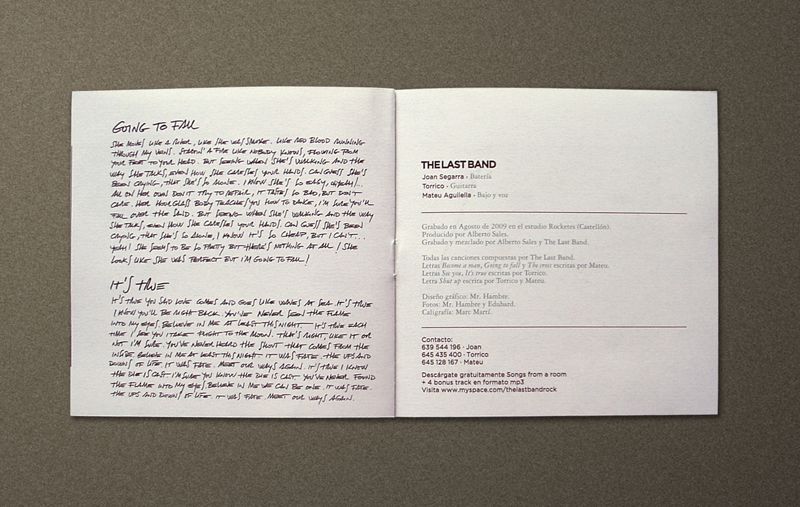 GOING TO FALL
SHE MOVES LIKE A RIVER, LIKE SHE WAS SMOKE. LIKE RED BLOOD RUNNING
THROUGH MY VEINS. STARTIN' A FIRE LIKE NOBODY KNOWS, FLOWING FROM
YOUR FEET TO YOUR HEAD. BUT SEEING WHEN SHE'S WALKING AND THE
WAY SHE TALKS, EVEN HOW SHE CARESSES YOUR HANDS. CAN GUESS SHE'S
BEEN CRYING, THAT SHE'S SO ALONE. I KNOW SHE'S SO EASY,
ALL ON HER OWN DON'T TRY TO REPAIR, IT TASTES SO BAD, BUT DON'T
CARE. HER HOURGLASS BODY TEACHES YOU HOW TO DANCE, I'M SURE YOU'LL
FALL OVER THE SAND. BUT SEEING WHEN SHE'S WALKING AND THE WAY
SHE TALKS, EVEN HOW SHE CARESSES YOUR HANDS. CAN GUESS SHE'S BEEN
CRYING, THAT SHE'S SO ALONE, I KNOW IT'S SO CHEAP, BUT I CAN'T...
YEAH! SHE SEEMS TO BE SO PRETTY BUT THERE'S NOTHING AT ALL! SHE
LOOKS LIKE SHE WAS PERFECT BUT I'M GOING TO FALL!
IT'S TRUE
IT'S TRUE YOU SAID LOVE COMES AND GOES LIKE WAVES AT SEA. IT'S TRUE
I KNOW YOU'LL BE RIGHT BACK. YOU'VE NEVER SEEN THE FLAME
INTO MY EYES. BELIEVE IN ME AT LEAST THIS NIGHT. IT'S TRUE EACH
TIME I SEE YOU I TAKE FLIGHT TO THE MOON. THAT'S RIGHT, LIKE IT OR
NOT I'M SURE. YOU'VE NEVER HEARD THE SHOUT THAT COMES FROM THE
INSIDE. BELIEVE IN ME AT LEAST THIS NIGHT. IT WAS FATE. THE UPS AND
DOWNS OF LIFE. IT WAS FATE. MEET OUR WAYS AGAIN. IT'S TRUE I KNOW
THE DIE IS CAST. I'M SURE YOU KNOW THE DIE IS CAST. YOU'VE NEVER FOUND
THE FLAME INTO MY EYES. BELIEVE IN ME WE CAN BE ONE. IT WAS FATE.
THE UPS AND DOWNS OF LIFE. IT WAS FATE. MEET OUR WAYS AGAIN.
THE LAST BAND
Joan Segarra · Batería
Torrico · Guitarra
Mateu Agulleila · Bajo y voz
Grabado en Agosto de 2009 en el estudio Rocketes (Castellón).
Producido por Alberto Sales.
Grabado y mezclado por Alberto Sales y The Last Band.
Todas las canciones compuestas por The Last Band.
Letras Become a man, Going to fall y The cross escritas por Mateu.
Letras See you, It's true escritas por Torrico.
Letra Shut up escrita por Torrico y Mateu.
Diseño gráfico: Mr. Hambre.
Fotos: Mr. Hambre y Eduhard.
Caligrafía: Marc Martí.
Contacto:
639 544 196 · Joan
645 435 400 · Torrico
645 128 167 · Mateu
Descárgate gratuitamente Songs from a room
+ 4 bonus track en formato mp3
Visita www.myspace.com/thelastbandrock